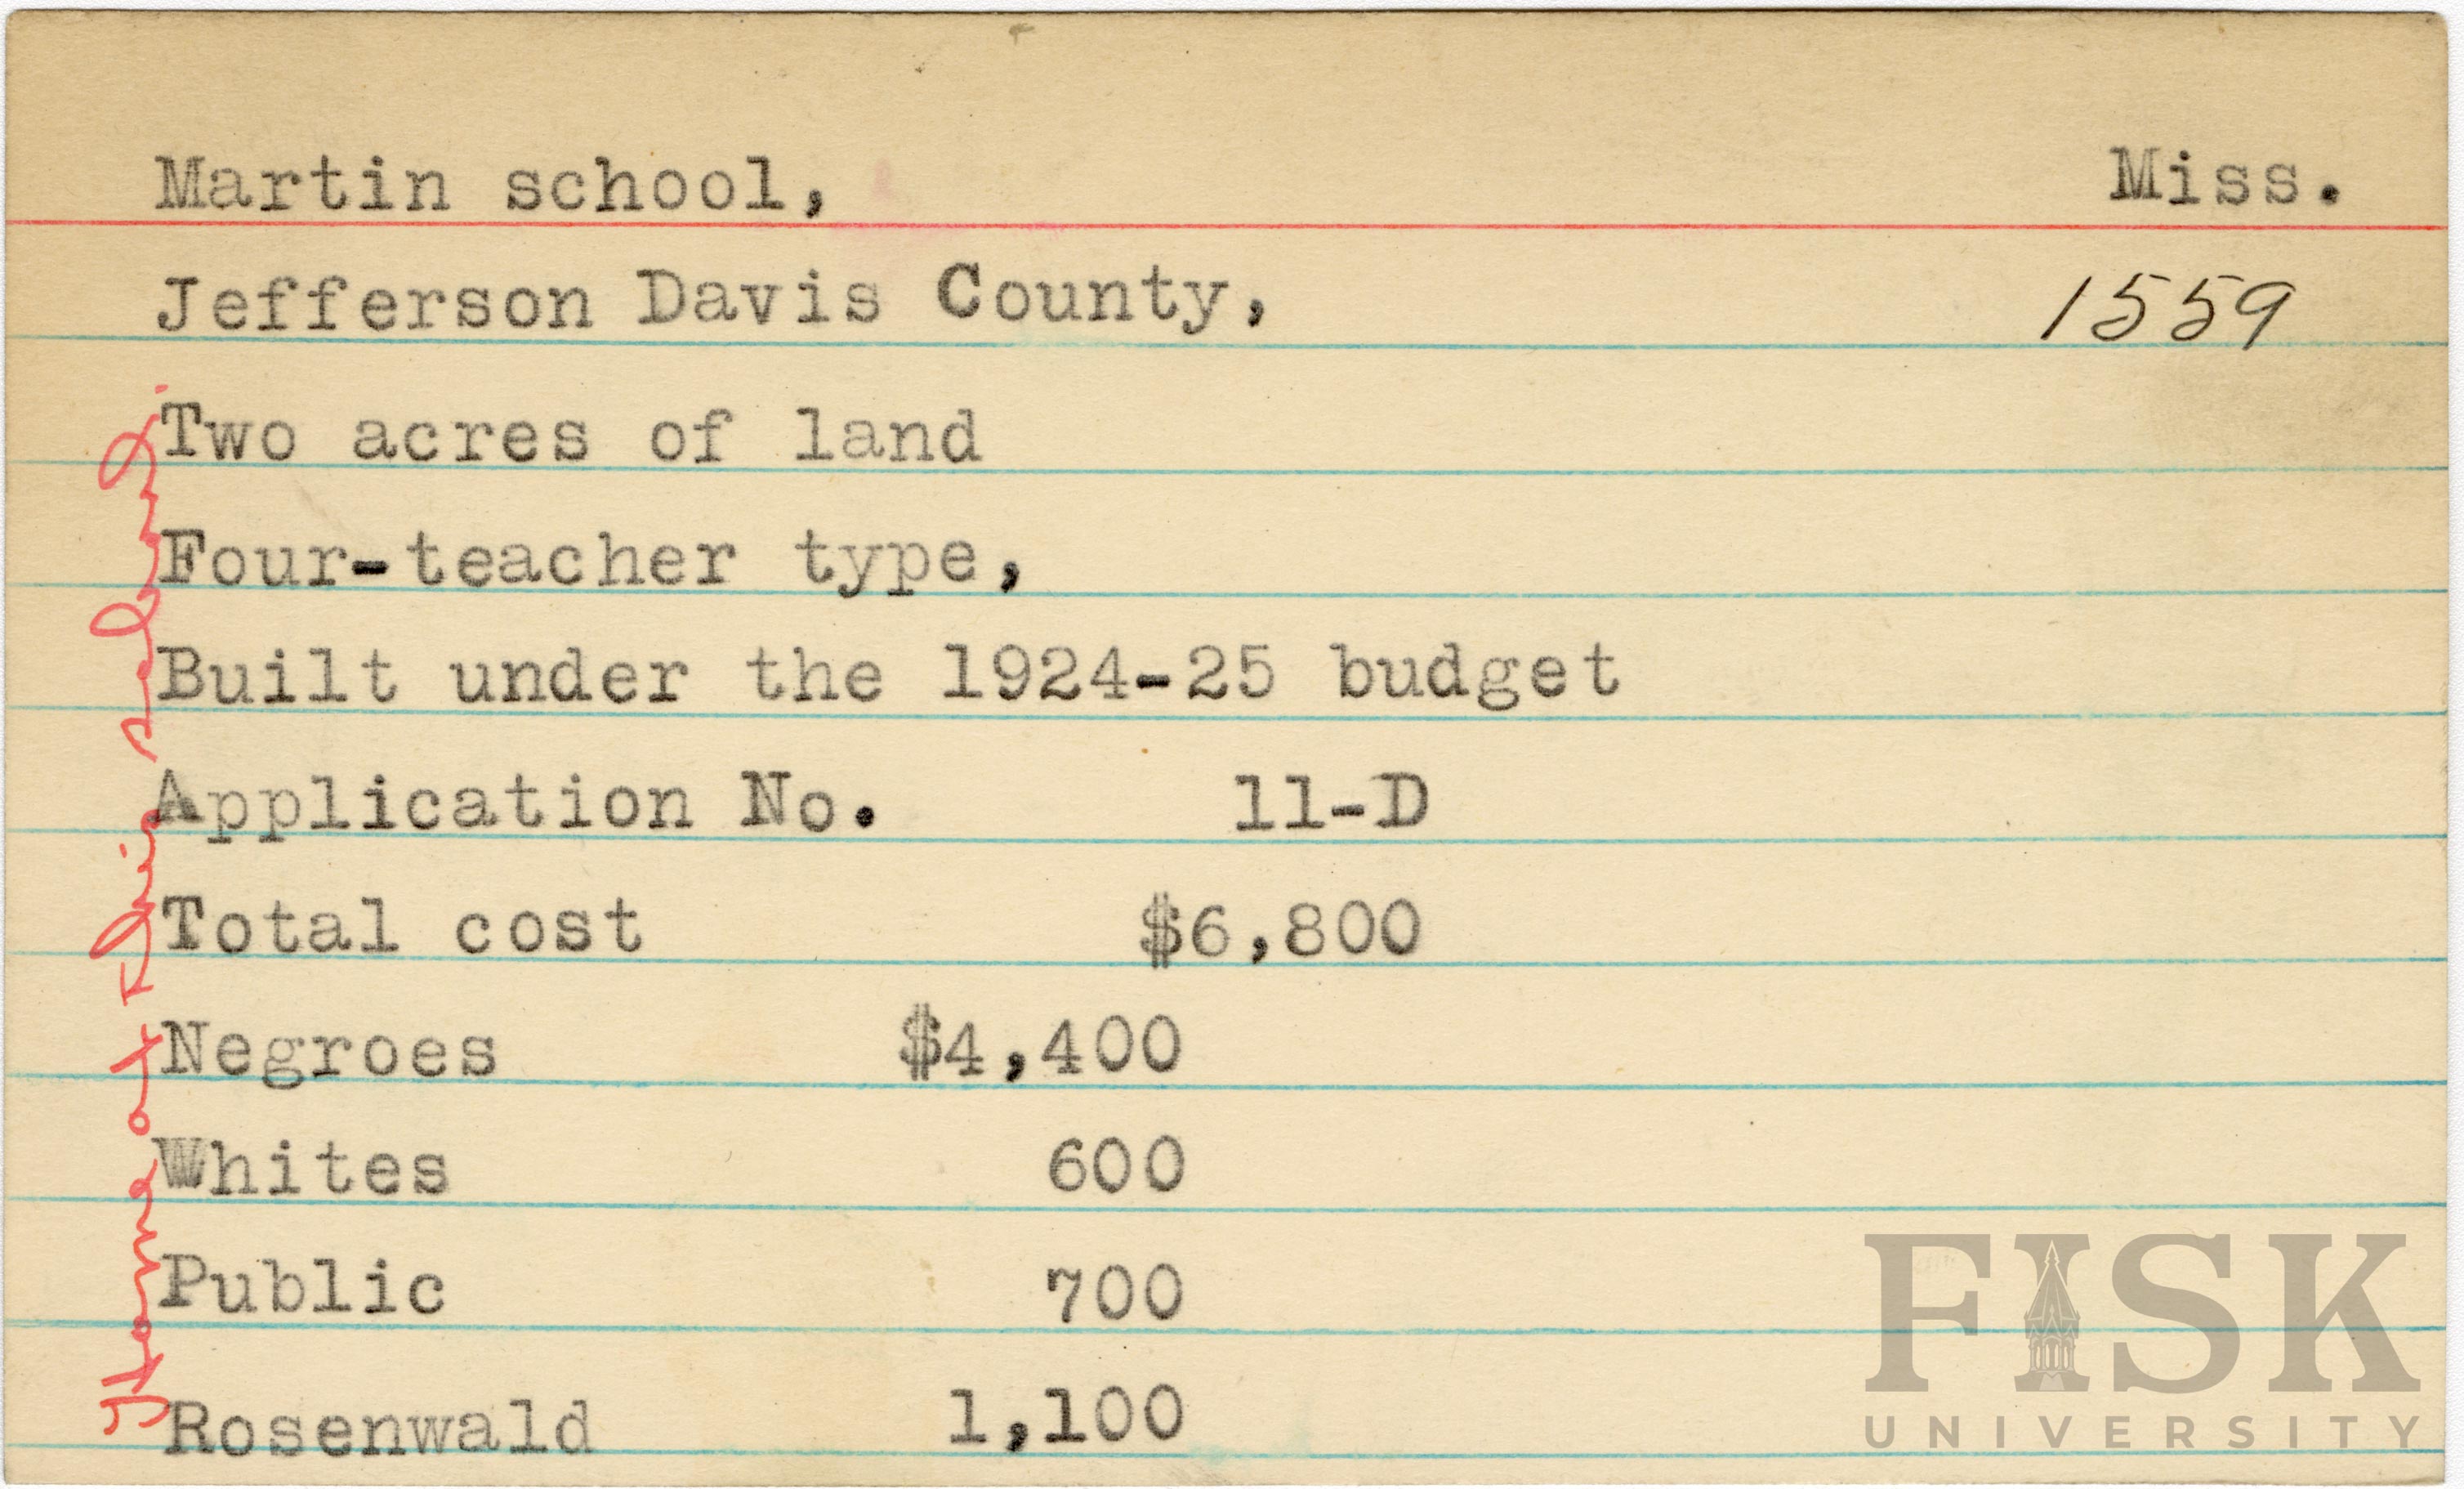 Martin school, Miss.
Jefferson Davis County, 1559
Two acres of land
Four-teacher type,
Built under the 1924-25 budget
Application No. 11-D
Total cost $6,800
Negroes $4,400
Whites 600
Public 700
Rosenwald 1,100
Home at this
FISK
UNIVERSITY